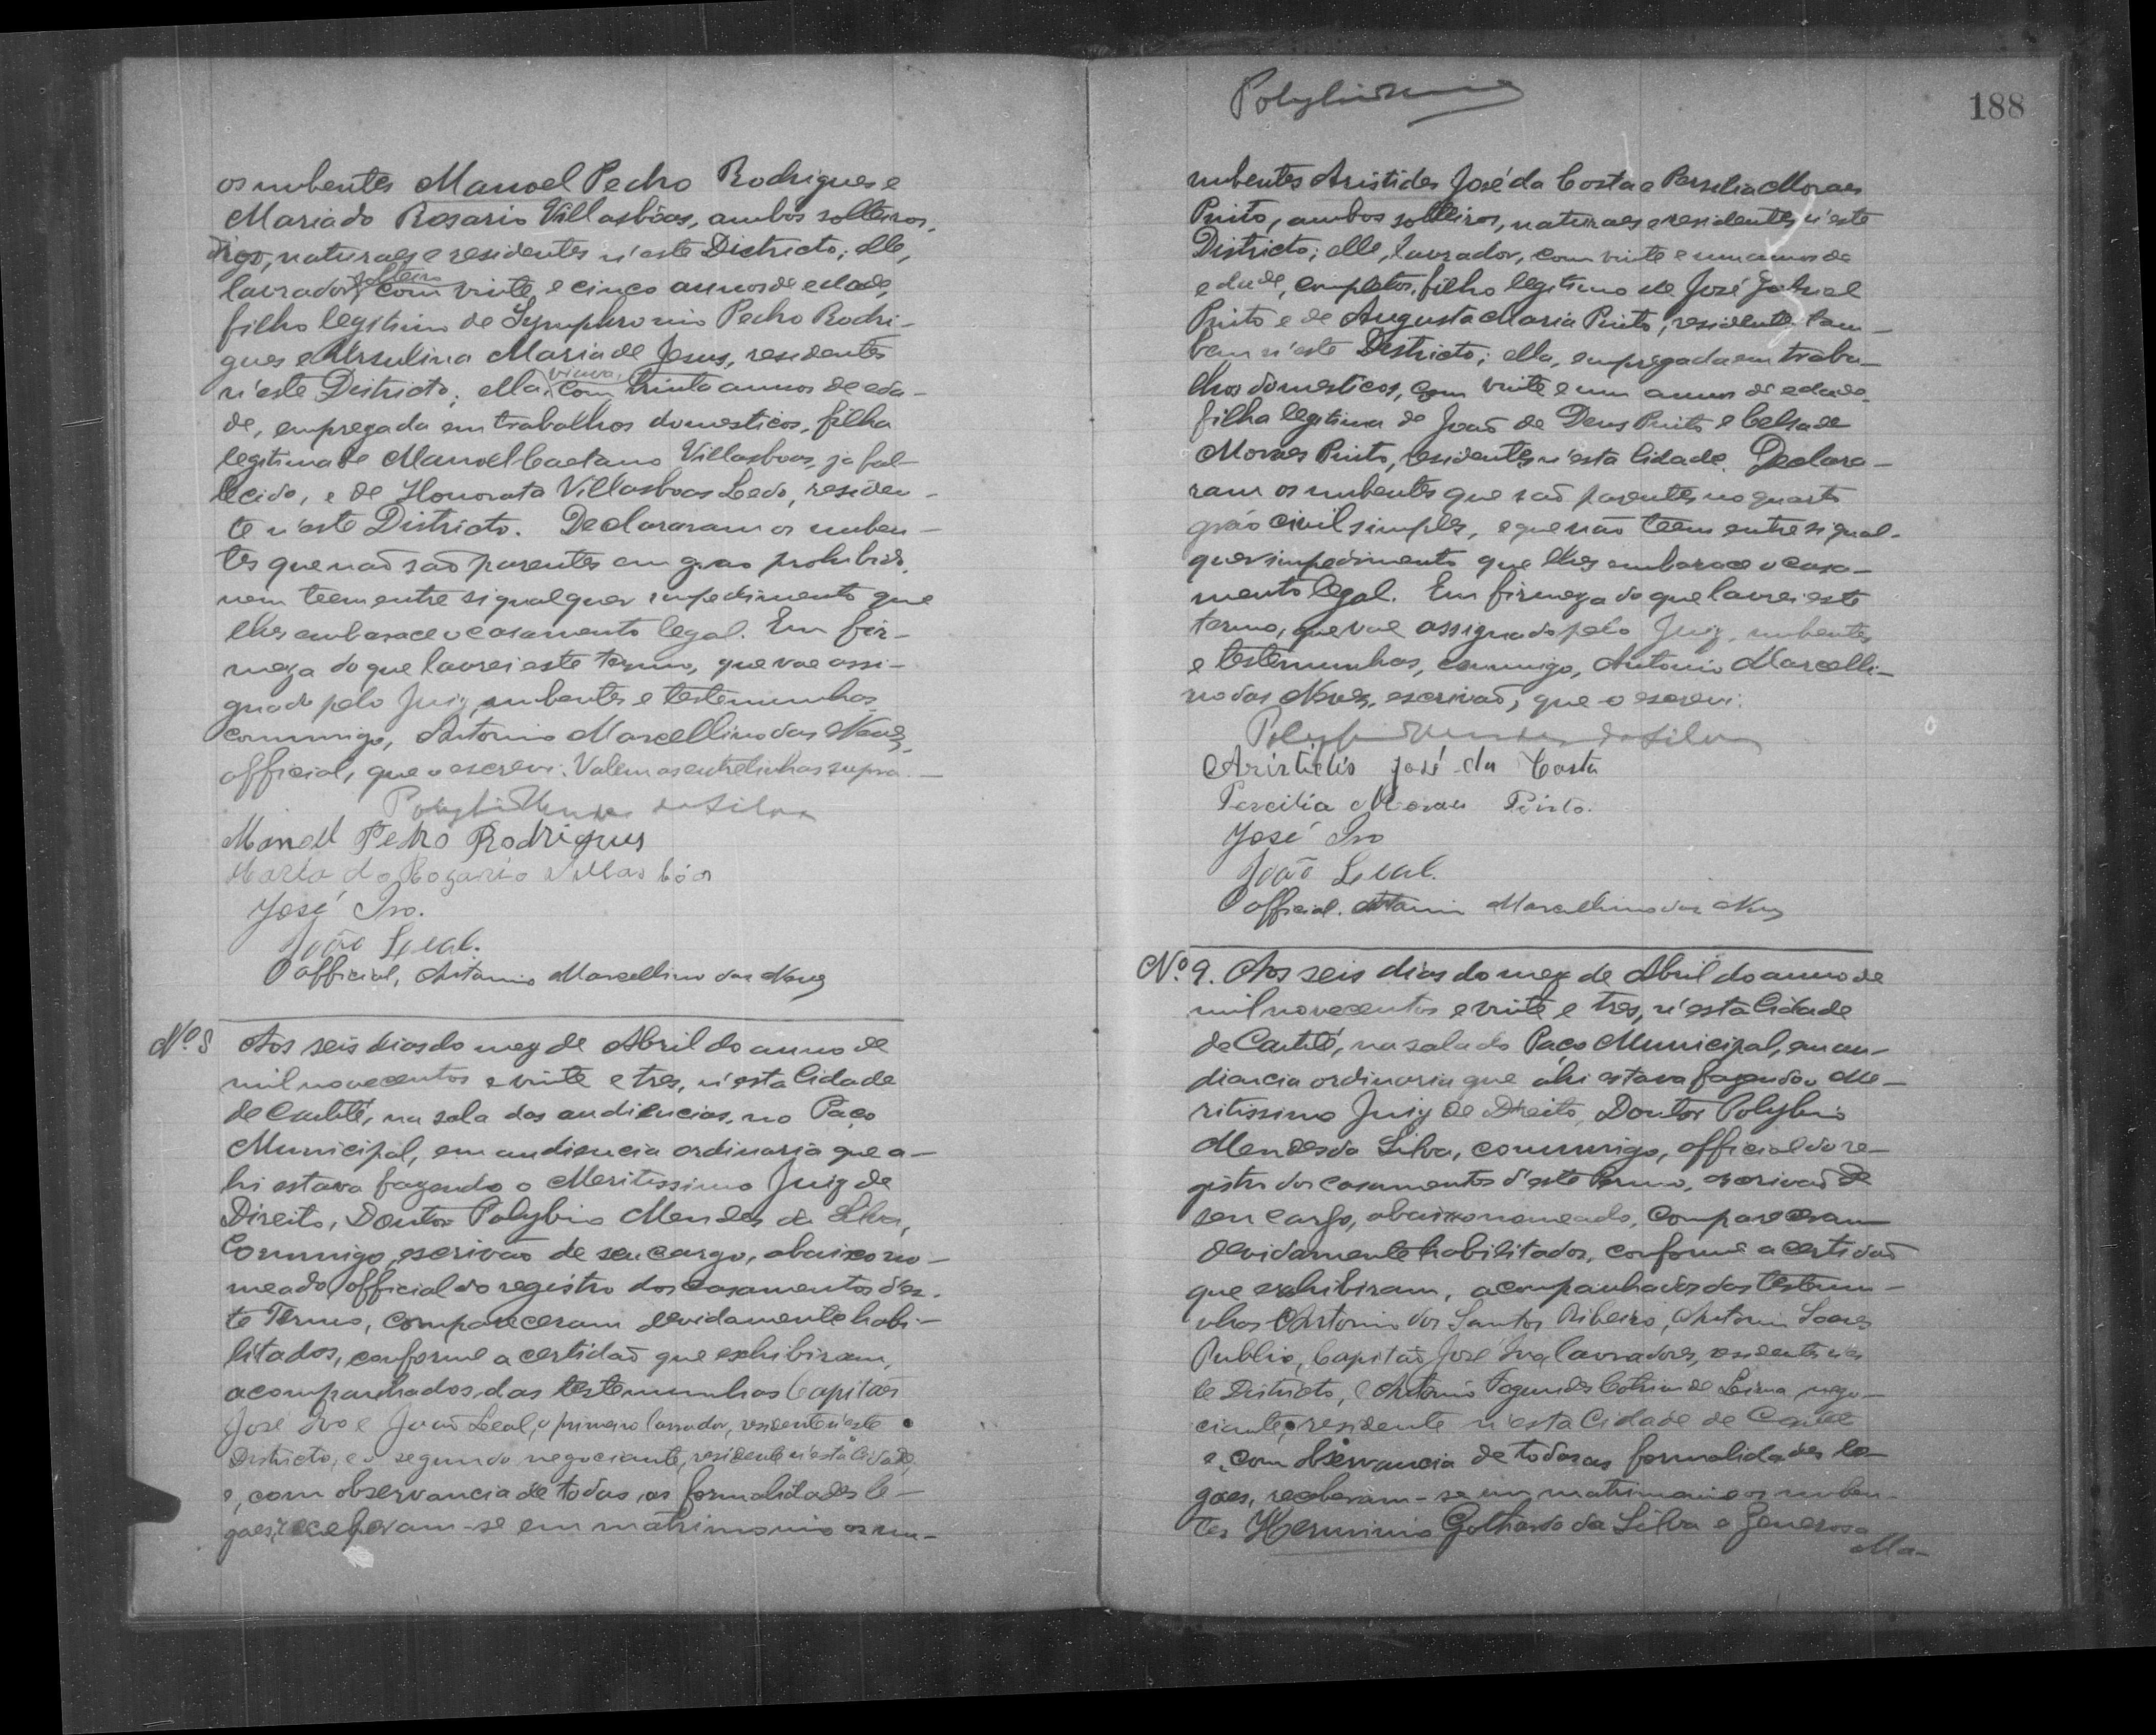 os nubentes Manoel Pedro Rodrigues e
Maria do Rosario Villasbôas, ambos solteiros,
digo, naturaes e residentes n'este Districto; elle,
lavrador, solteiro com vinte e cinco annos de edade,
filho legitimo de Symphronio Pedro Rodri-
gues e Ursulina Maria de Jesus, residentes
n'este Districto; ella, viuva, com trinta annos de eda-
de, empregada em trabalhos domesticos, filha
legitima de Manoel Caetano Villasboas, ja fal-
lecido, e de Honorata Villasboas Ledo, residen-
te n'este Districto. Declararam os nuben-
tes que naõ saõ parentes em grao prohibido,
nem teem entre si qualquer impedimento que
lhes embarace o casamento legal. Em fir-
meza do que lavrei este termo, que vae assi-
gnado pelo Juiz, nubentes e testemunhas,
commigo, Antonio Marcellino das Neves,
official, que o escrevi. Valem as entrelinhas supra.-
Polybio Mendes da Silva
Manoel Pedro Rodrigues
Maria do Rozario Villas bôas
José Ivo.
João Leal.
O official, Antonio Marcellino das Neves
Nº 8 Aos seis dias do mez de Abril do anno de
mil novecentos e vinte e tres, n'esta Cidade
de Caetité, na sala das audiencias, no Paço
Municipal, em audiencia ordinaria que a-
hi estava fazendo o Meritissimo Juiz de
Direito, Doutor Polybio Mendes da Silva,
Commigo, escrivão de seu cargo, abaixo no-
meado, official do registro dos casamentos d'es-
te Termo, compareceram devidamente habi-
litados, conforme a certidaõ que exhibiram,
acompanhados das testemunhas Capitaõ
José Ivo e Joaõ Leal, o primeiro lavrador, residente n'este
Districto, e o segundo negociante, residente n'esta Cidade,
e, com observancia de todas as formalidades le-
gaes, receberam-se em matrimonio os nu-
Polybio Mendes
188
nubentes Aristides José da Costa e Persilia Moraes
Pinto, ambos solteiros, naturaes e residentes n'este
Districto; elle, lavrador, com vinte e um annos de
edade, completos, filho legitimo de José Gabriel
Pinto e de Augusta Maria Pinto, residentes tam-
bem n'este Districto; ella, empregada em traba-
lhos domesticos, com vinte e um annos de edade,
filha legitima de Joaõ de Deus Pinto e Celsa de
Moraes Pinto, residentes n'esta Cidade. Declara-
ram os nubentes que saõ parentes no quarto
gráo civil simples, e que não teem entre si qual-
quer impedimento que lhes embarace o casa-
mento legal. Em firmeza do que lavrei este
termo, que vae assignado pelo Juiz, nubentes
e testemunhas, commigo, Antonio Marcelli-
no das Neves, escrivaõ, que o escrevi.
Polybio Mendes da Silva
Aristidis José da Costa
Percilia Moraes Pinto.
José Ivo
João Leal.
O official. Antonio Marcellino das Neves
Nº 9. Aos seis dias do mez de Abril do anno de
mil novecentos e vinte e tres, n'esta Cidade
de Caetité, na sala do Paço Municipal, em au-
diencia ordinaria que ahi estava fazendo o Me-
ritissimo Juiz de Direito, Doutor Polybio
Mendes da Silva, commigo, official do re-
gistro dos casamentos d'este Termo, escrivaõ de
seu cargo, abaixo nomeado, compareceram
devidamente habilitados, conforme a certidaõ
que exhibiram, acompanhados das testemu-
nhas Antonio dos Santos Ribeiro, Antonio Soares
Publio, Capitaõ José Ivo, lavradores, residentes n'es-
te Districto, e Antonio Fagundes Cotrim de Lima, nego-
ciante, residente n'esta Cidade de Caetité
e, com observancia de todas as formalidades le-
gaes, receberam-se em matrimonio os nuben-
tes Herminio Gothardo da Silva e Generosa
Ma-